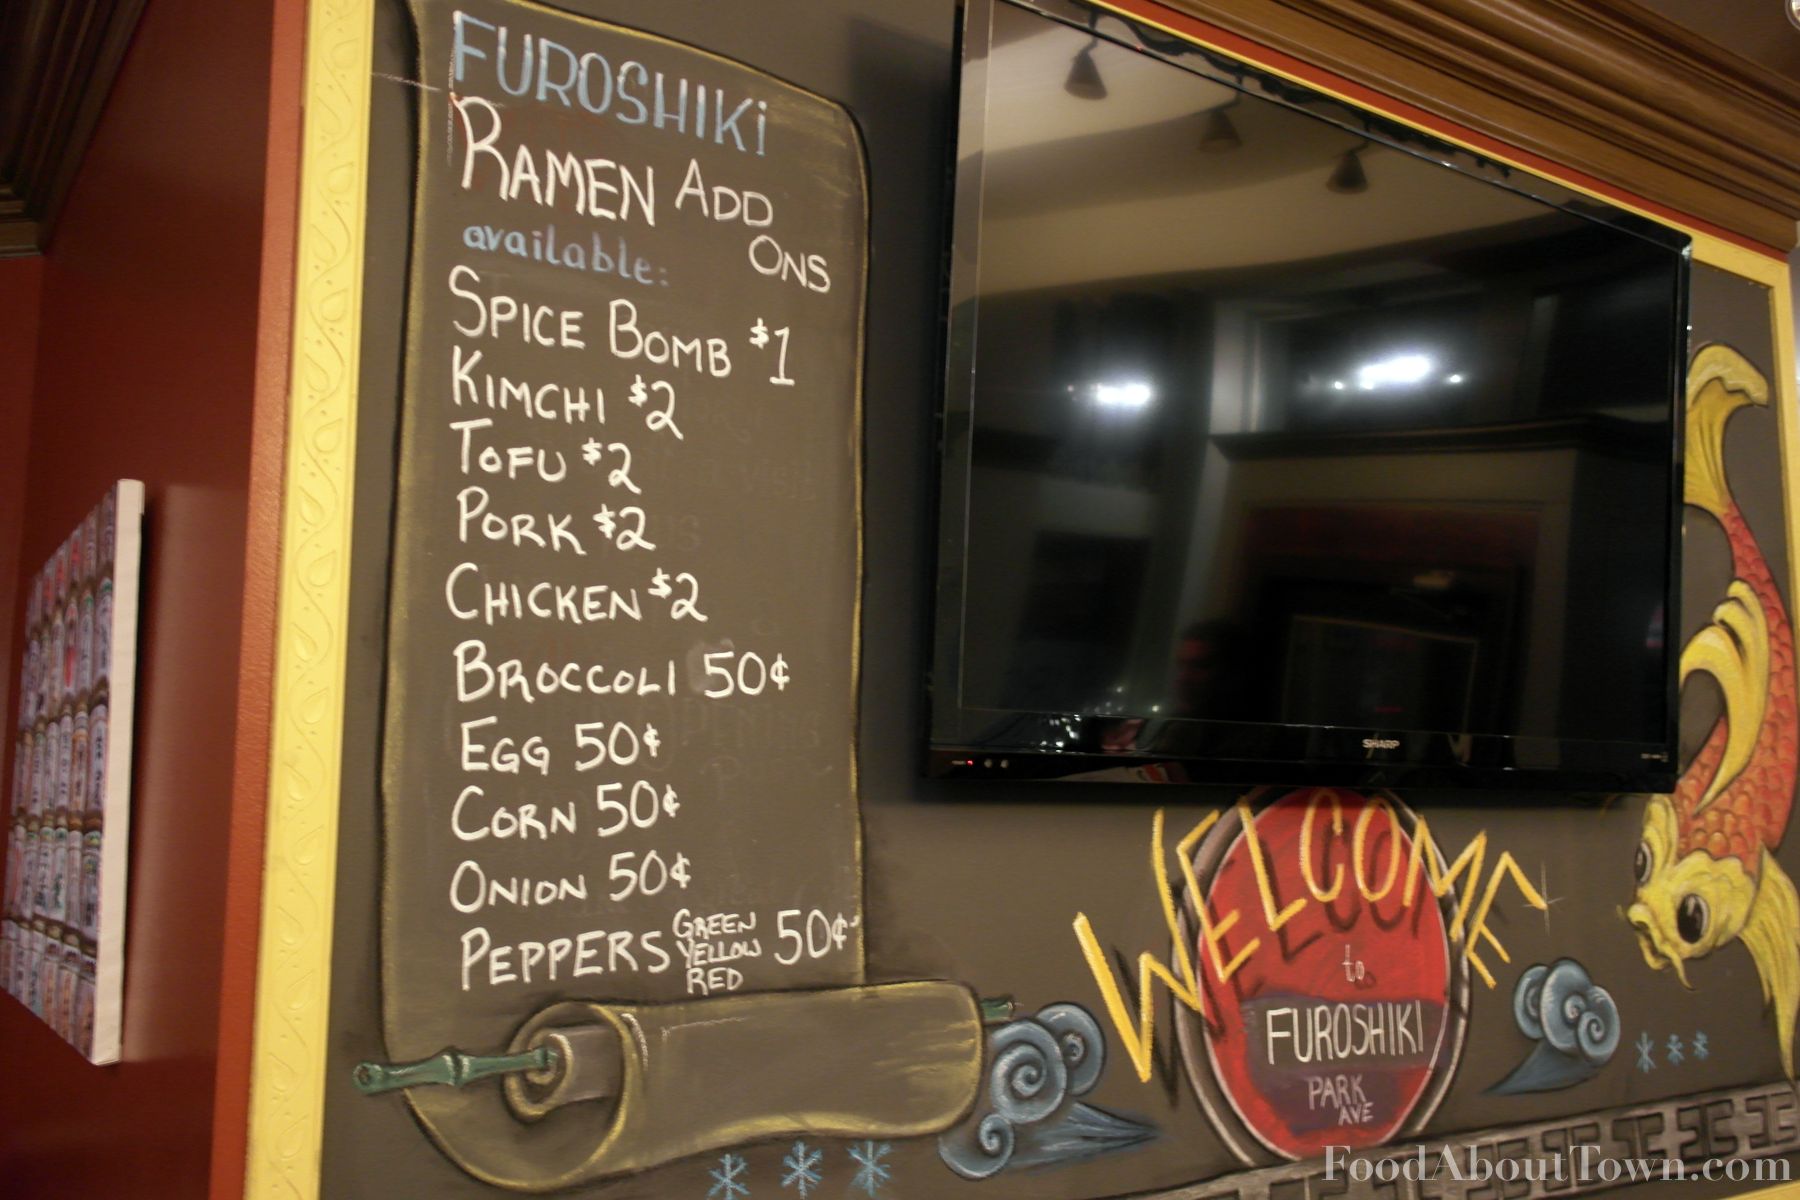 FUROSHIKi
RAMEN ADD
ONS
available:
SPICE BOMB $1
KIMCHI $2
TOFU $2
PORK $2
CHICKEN $2
BROCCOLI 50¢
EGG 50¢
CORN 50¢
ONION 50¢
PEPPERS GREEN YELLOW RED 50¢
SHARP
WELCOME
to
FUROSHIKI
PARK
AVE
FoodAboutTown.com